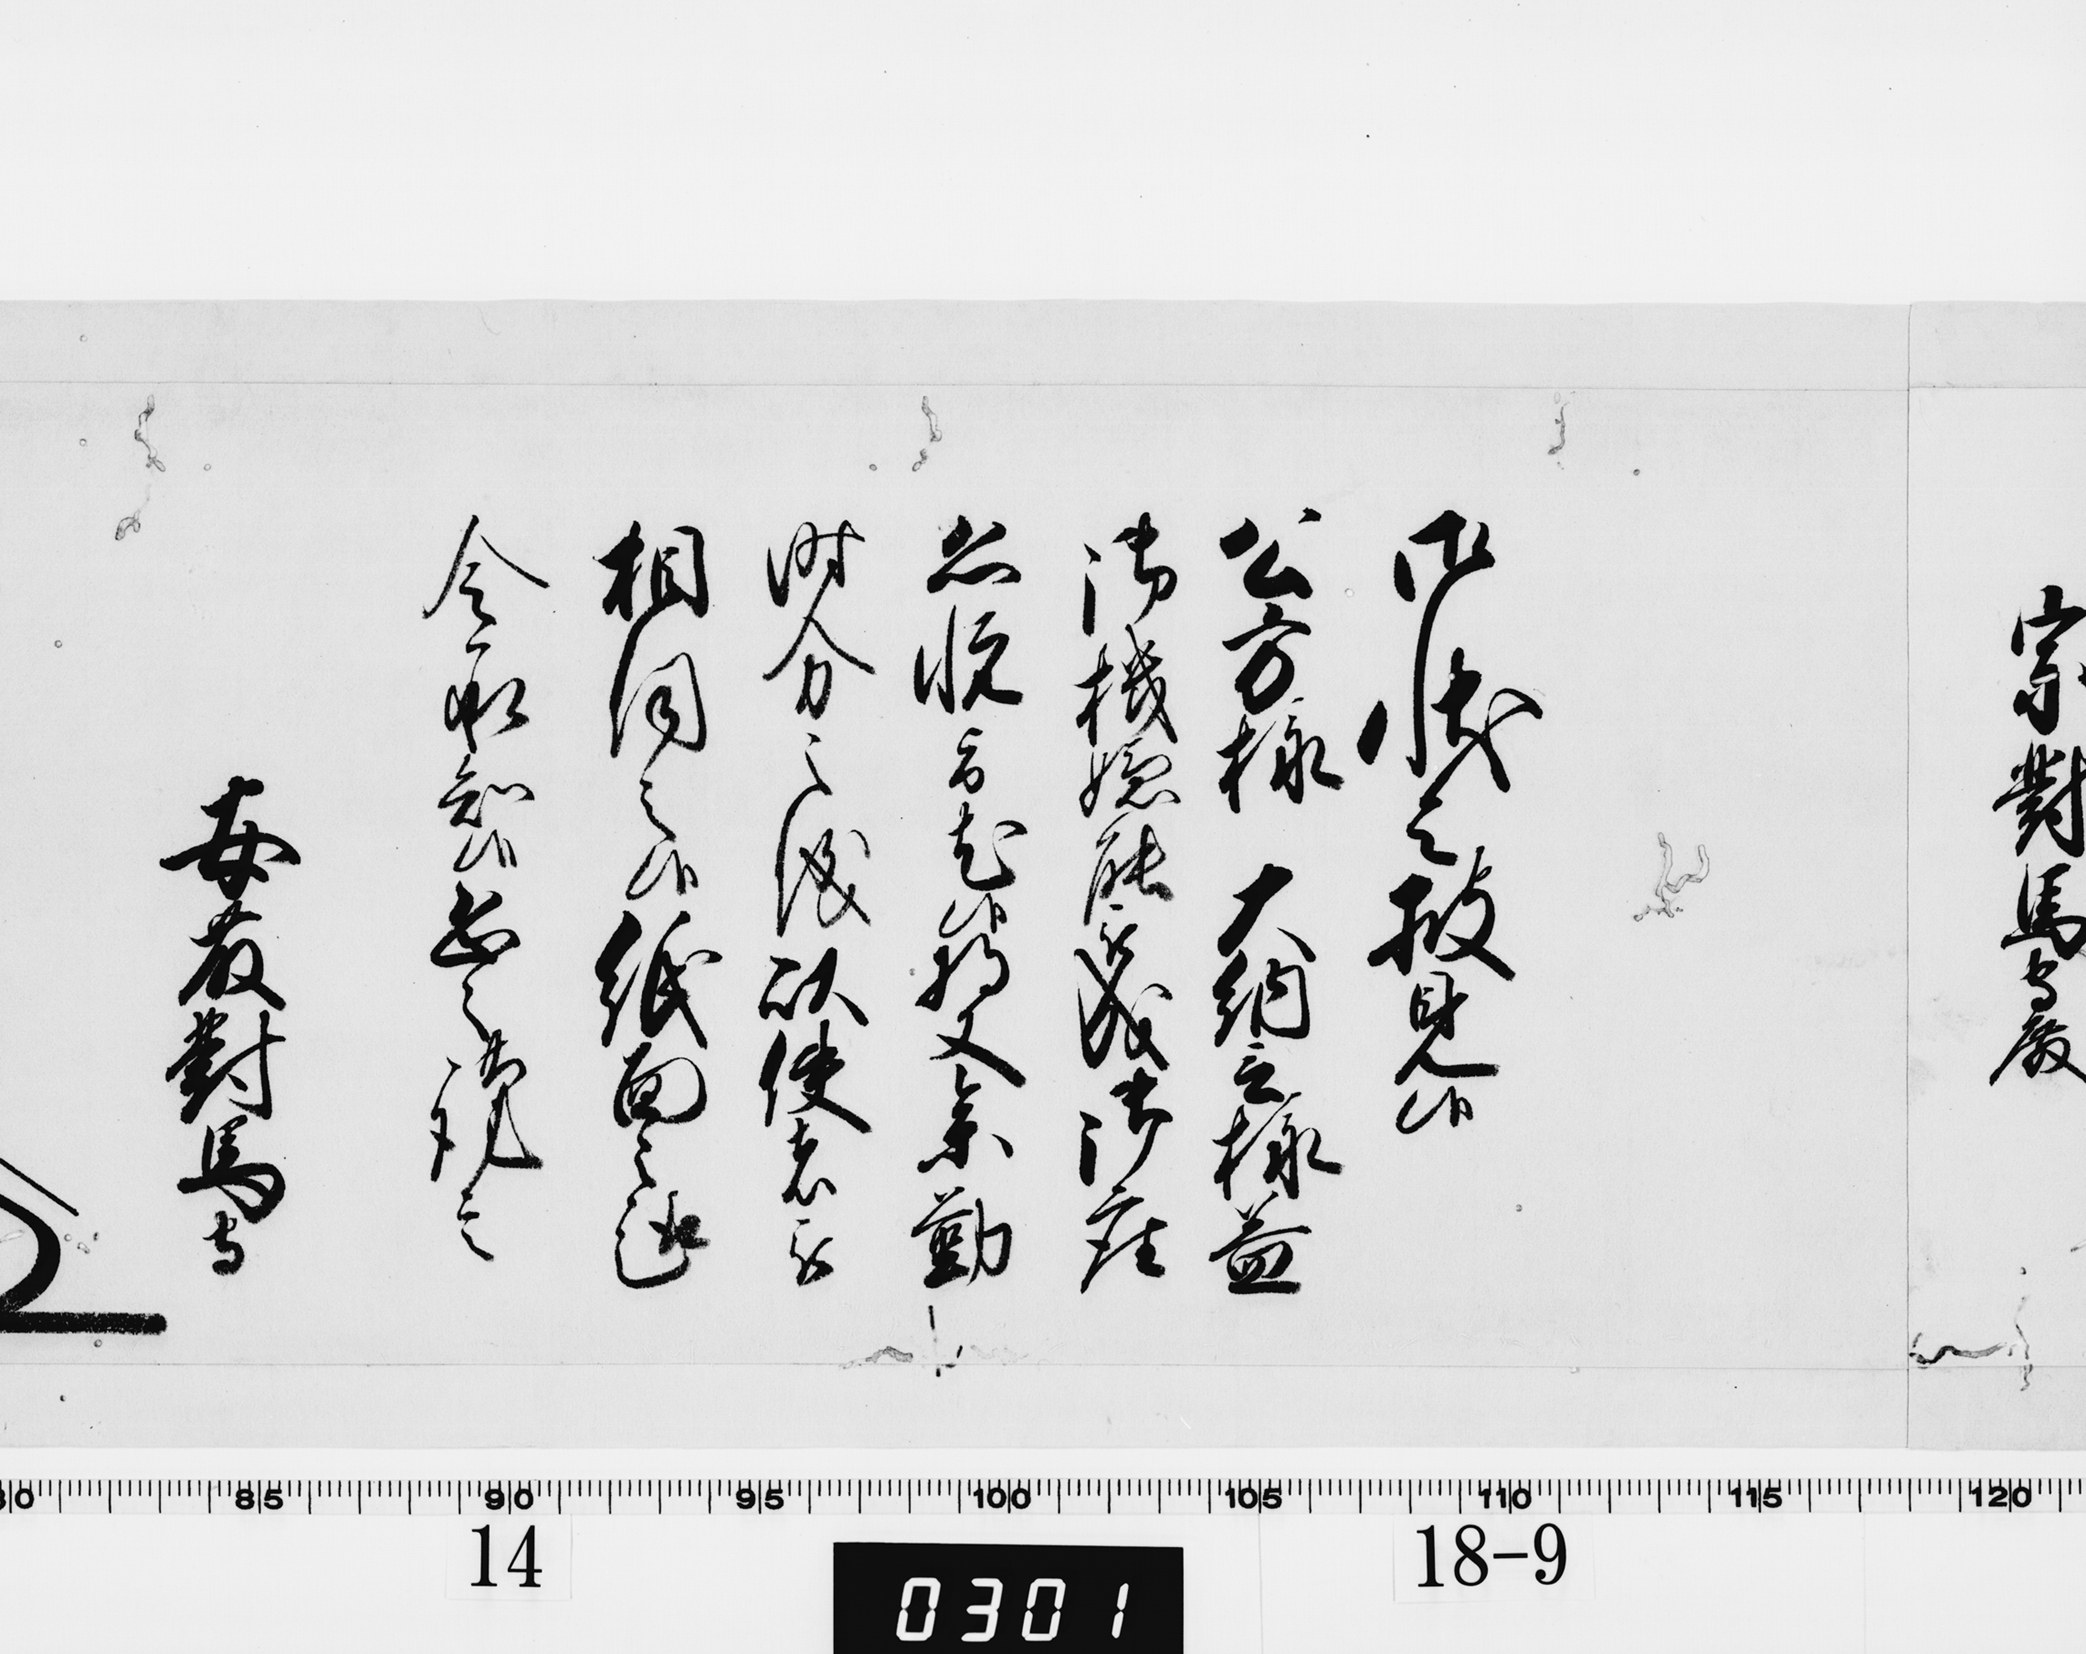 宗對馬守殿
御狀令披見候
公方様 大納言様益
御機嫌能被成御座
恐悦旨尤候將又参勤
時分之儀以使者被
相伺之候紙面之趣
令承知候恐々謹言
安藤對馬守
80 85 90 95 100 105 110 115 120
14
0301
18-9